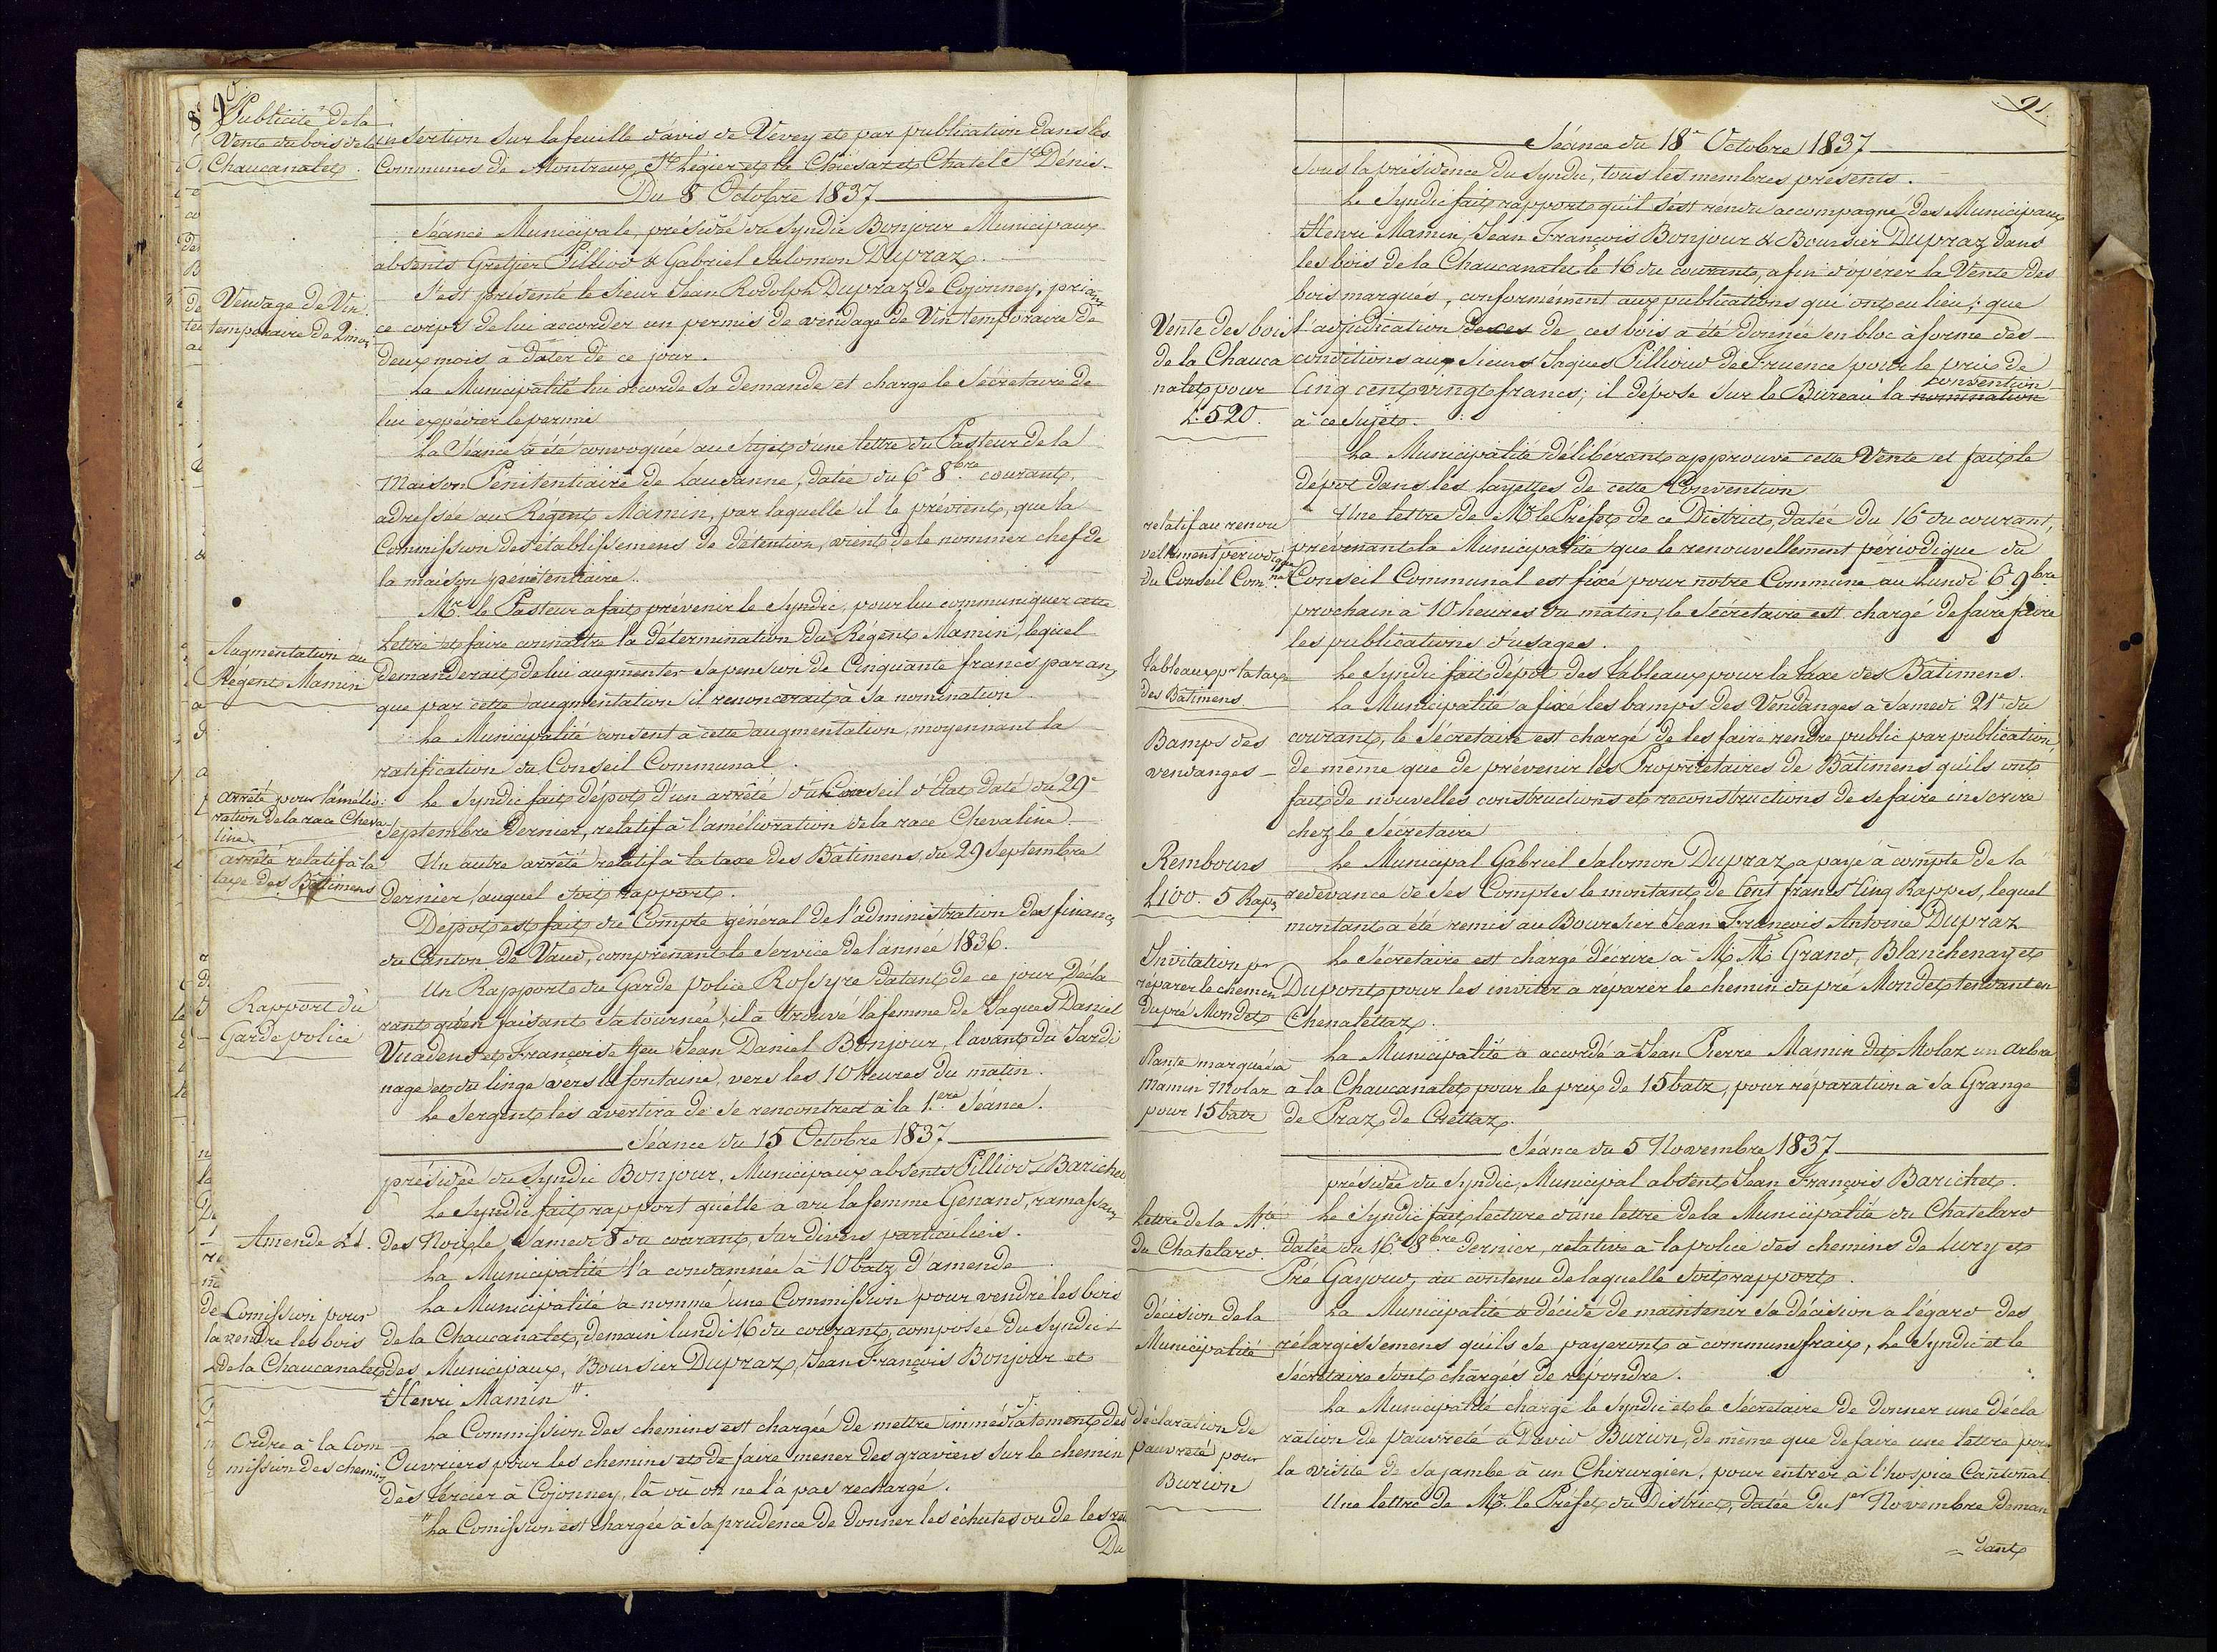 90
Publicité de la
Vente du bois de la
Chaucanalet.
insertion sur la feuille d'avis de Vevey et par publication dans les
Communes de Montreux, St Légier et la Chiésaz et Chatel St Dénis.
Du 8 Octobre 1837
Séance Municipale, présidée du Syndic Bonjour Municipaux
absents Greffier Pilliod & Gabriel Salomon Dupraz.
Vendage de Vin
temporaire de 2 mois
S'est présenté le Sieur Jean Rodolph Dupraz de Cojonney, priant
ce corps de lui accorder un permis de vendage de Vin temporaire de
deux mois à dater de ce jour.
La Municipalité lui accorde sa demande et charge le Sécretaire de
lui expédier le permi
La Séance a été convoquée au Sujet d'une lettre du Pasteur de la
Maison Pénitentiaire de Lausanne, datée du 6e 8bre courant,
adressée au Régent Mamin, par laquelle il le prévient, que la
Commission des établissemens de détention, vient de le nommer chef de
la maison pénitentiaire.
Augmentation au
Régent Mamin
Mr. le Pasteur a fait prévenir le Syndic, pour lui communiquer cette
Lettre et faire connaître la détermination du Régent Mamin, lequel
demanderait de lui augmenter sa pension de Cinquante francs par an,
que par cette augmentation il renoncerait à sa nomination.
La Municipalité consent à cette augmentation, moyennant la
ratification du Conseil Communal.
arrêté pour l'amélio-
ration de la race Cheva-
line
Le Syndic fait dépot d'un arrêté du Conseil d'Etat daté du 29e
Septembre dernier, relatif à l'amélioration de la race Chevaline.
arrêté relatif à la
taxe des Bâtimens
Un autre arrêté relatif à la taxe des Bâtimens, du 29 Septembre
dernier, auquel soit rapport.
Dépot est fait du Compte général de l'administration des finances
du Canton de Vaud, comprenant le Service de l'année 1836.
Rapport du
Garde police
Un Rapport du Garde police Rossyre datant de ce jour, Décla
rant qu'en faisant sa tournée, il a trouvé la femme de Jaques Daniel
Vuadens et Françoise feu Jean Daniel Bonjour, lavant du Jardi
nage et du linge vers la fontaine, vers les 10 heures du matin.
Le Sergent les avertira de se rencontrer à la 1.ere Séance.
Séance du 15 Octobre 1837
présidée du Syndic Bonjour, Municipaux absents Pilliod & Barichet
Amende L1.
Le Syndic fait rapport qu'elle a vu la femme Genand, ramassant
des Noix, le Samedi 8 du courant, sur divers particuliers.
La Municipalité l'a condamnée à 10 batz d'amende.
Comission pour
la vendre les bois
de la Chaucanalet
La Municipalité a nommé une Commission pour vendre les bois
de la Chaucanalet, demain lundi 16 du courant, composée du Syndic &
des Municipaux, Boursier Dupraz, Jean François Bonjour et
Henri Mamin".
Ordre à la Com
mission des chemins
La Commission des chemins est chargée de mettre immédiatement des
Ouvriers pour les chemins et de faire mener des graviers sur le chemin
dès Vercier à Cojonney, là où on ne l'a pas rechargé.
"La Comission est chargée à sa prudence de donner les échutes ou de les
Du
91.
Séance du 18e Octobre 1837
Sous la présidence du Syndic, tous les membres présents.
Le Syndic fait rapport qu'il s'est rendu accompagné des Municipaux
Henri Mamin, Jean François Bonjour & Boursier Dupraz dans
les bois de la Chaucanalet le 16 du courant, afin d'opérer la Vente des
bois marqués, conformément aux publications qui ont eu lieu; que
Vente des bois
de la Chauca
nalet pour
L. 520.
l'adjudication de ces de ces bois a été donnée en bloc à forme des
conditions aux Sieurs Jaques Pilliow de Fruence pour le prix de
Cinq cent vingt francs; il dépose sur le Bureau la nomination convention
à ce Sujet.
La Municipalité délibérant approuve cette Vente et fait le
depot dans les Layettes de cette Convention
relatif au renou
vellement périodique
du Conseil Com.nal
Une lettre de Mr. le Préfet de ce District, datée du 16e du courant,
prévenant la Municipalité que le renouvellement périodique du
Conseil Communal est fixé pour notre Commune au Lundi 6e 9bre
prochain à 10 heures du matin, le Sécretaire est chargé de faire faire
les publications d'usages.
tableaux pr la taxe
des Bâtimens
Le Syndic fait dépot des tableaux pour la taxe des Bâtimens.
Bamps des
vendanges
La Municipalité a fixé les bamps des Vendanges à Samedi 21e du
courant, le Sécretaire est chargé de les faire rendre public par publication,
de même que de prévenir les Proprietaires de Bâtimens qu'ils ont
fait de nouvelles constructions et reconstructions de se faire inscrire
chez le Sécretaire
Rembours
L100. 5 Raps
Le Municipal Gabriel Salomon Dupraz a payé à compte de la
redevance de ses Comptes le montant de Cent francs Cinq Rappes, lequel
montant a été remis au Boursier Jean François Antoine Dupraz
Invitation pr
réparer le chemin
du pré Mondet
Le Sécretaire est chargé d'écrire à M. M. Grand, Blanchenay et
Dupont pour les inviter à réparer le chemin du pré Mondet tendant en
Chenalettaz.
Plante marquée à
Mamin Molaz
pour 15 batz
La Municipalité a accordé à Jean Pierre Mamin dit Molaz un arbre
à la Chaucanalet pour le prix de 15 batz, pour réparation à sa Grange
de Praz de Crettaz.
Séance du 5 Novembre 1837
présidée du Syndic, Municipal absent Jean François Barichet.
Lettre de la M.té
du Chatelard.
Le Syndic fait lecture d'une lettre de la Municipalité du Chatelard
datée du 16e 8bre dernier, relative à la police des chemins de Lury et
Pré Gayoud, au contenu de laquelle soit rapport.
décision de la
Municipalité
La Municipalité a décidé de maintenir sa décision à l'égard des
rélargissemens qu'ils se payeront à communs fraix, Le Syndic et le
Sécretaire sont chargés de répondre.
déclaration de
pauvreté pour
Burion
La Municipalité charge le Syndic et le Sécretaire de donner une décla
ration de pauvreté à David Burion, de même que de faire une lettre pour
la visite de sa jambe à un Chirurgien, pour entrer à l'hospice Cantonal.
Une lettre de Mr. le Préfet du District, datée du 1er Novembre deman
= dant